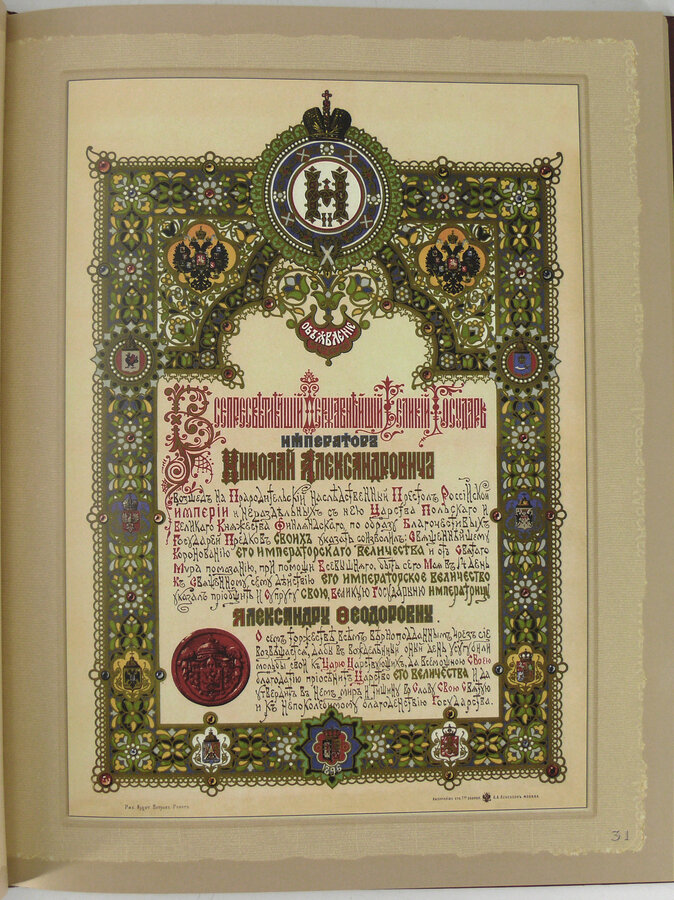 Н
II
ОБЪЯВЛЕНІЕ
ВСЕПРЕСВѢТЛѢЙШІЙ ДЕРЖАВНѢЙШІЙ ВЕЛИКІЙ ГОСУДАРЬ
ИМПЕРАТОРЪ
НИКОЛАЙ АЛЕКСАНДРОВИЧЪ
ВОЗШЕДЪ НА ПРАРОДИТЕЛЬСКІЙ НАСЛѢДСТВЕННЫЙ ПРЕСТОЛЪ РОССІЙСКОЙ
ИМПЕРІИ И НЕРАЗДѢЛЬНЫХЪ СЪ НЕЮ ЦАРСТВА ПОЛЬСКАГО И
ВЕЛИКАГО КНЯЖЕСТВА ФИНЛЯНДСКАГО, ПО ОБРАЗУ БЛАГОЧЕСТИВЫХЪ
ГОСУДАРЕЙ ПРЕДКОВЪ СВОИХЪ УКАЗАТЬ СОИЗВОЛИЛЪ: СВЯЩЕННѢЙШЕМУ
КОРОНОВАНІЮ ЕГО ИМПЕРАТОРСКАГО ВЕЛИЧЕСТВА И ОТЪ СВЯТАГО
МѴРА ПОМАЗАНІЮ, ПРИ ПОМОЩИ ВСЕВЫШНЯГО, БЫТЬ СЕГО МАЯ ВЪ 14 ДЕНЬ
КЪ СВЯЩЕННОМУ СЕМУ ДѢЙСТВІЮ ЕГО ИМПЕРАТОРСКОЕ ВЕЛИЧЕСТВО
УКАЗАЛЪ ПРІОБЩИТЬ И СУПРУГУ СВОЮ, ВЕЛИКУЮ ГОСУДАРЫНЮ ИМПЕРАТРИЦУ
АЛЕКСАНДРУ ѲЕОДОРОВНУ.
О СЕМЪ ТОРЖЕСТВѢ ВСѢМЪ ВѢРНОПОДДАННЫМЪ ЧРЕЗЪ СІЕ
ВОЗВѢЩАЕТСЯ, ДАБЫ ВЪ ВОЖДЕЛѢННЫЙ ОНЫЙ ДЕНЬ УСУГУБИЛИ
МОЛЬБЫ СВОИ КЪ ЦАРЮ ЦАРСТВУЮЩИХЪ, ДА ВСЕМОЩНОЮ СВОЕЮ
БЛАГОДАТІЮ ПРІОСѢНИТЪ ЦАРСТВО ЕГО ВЕЛИЧЕСТВА И ДА
УТВЕРДИТЪ ВЪ НЕМЪ МИРЪ И ТИШИНУ ВО СЛАВУ СВОЮ СВЯТУЮ
И КЪ НЕПОКОЛЕБИМОМУ БЛАГОДЕНСТВІЮ ГОСУДАРСТВА.
1896
МОСКВА.
31